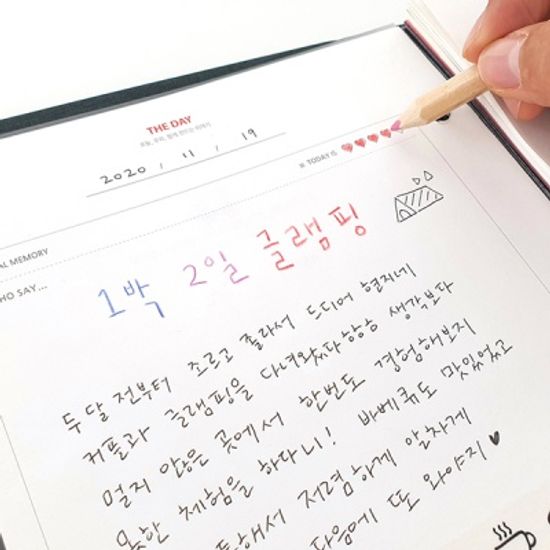 THE DAY
오늘, 우리, 함께 만드는 이야기
2020 / 11 / 19
※ TODAY IS
AL MEMORY
HO SAY...
1박 2일 글램핑
두달 전부터 조르고 졸라서 드디어 현지네
커플과 글램핑을 다녀왔다항항 생각보다
멀지 않은 곳에서 한번도 경험해보지
못한 체험을 하다니! 바베큐도 맛있었고
통해서 저렴하게 알차게
다음에 또 와야지♥